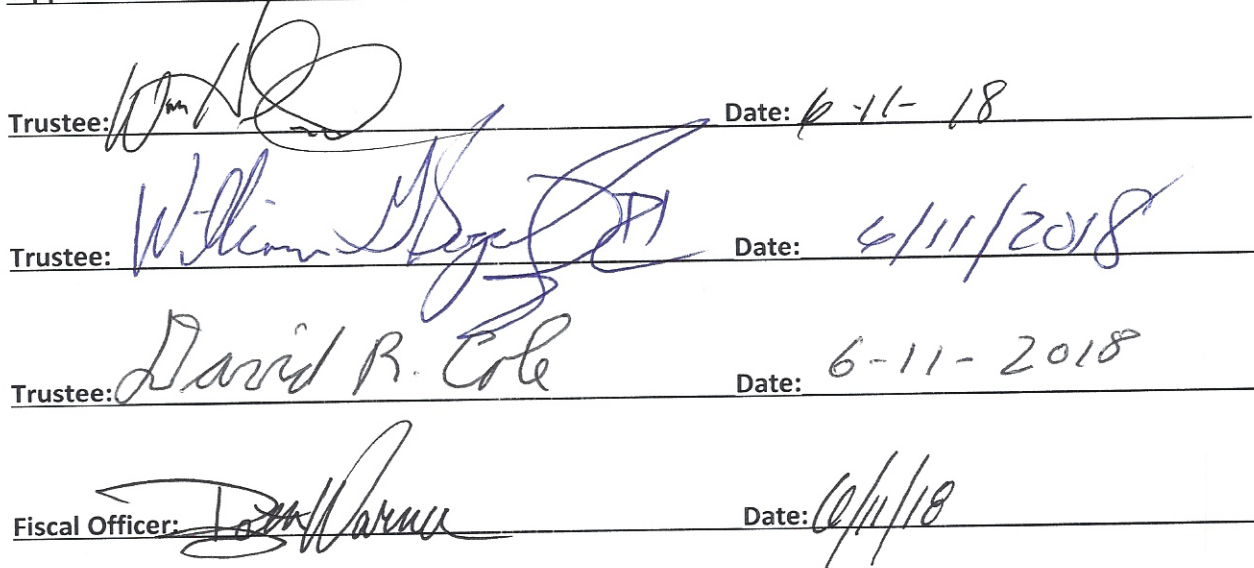 Trustee: Date: 6-11-18
Trustee: William Date: 6/11/2018
Trustee: David R. Cole Date: 6-11-2018
Fiscal Officer: Warner Date: 6/11/18